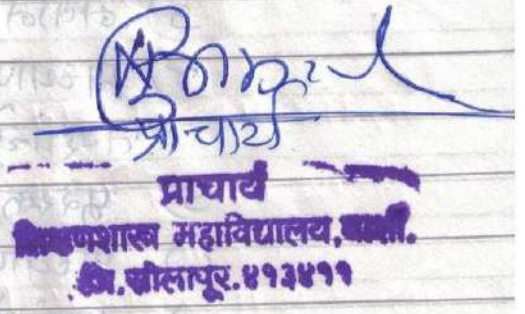 प्राचार्य
प्राचार्य
शिक्षणशास्त्र महाविद्यालय, बार्शी.
जि. सोलापूर. ४१३४११